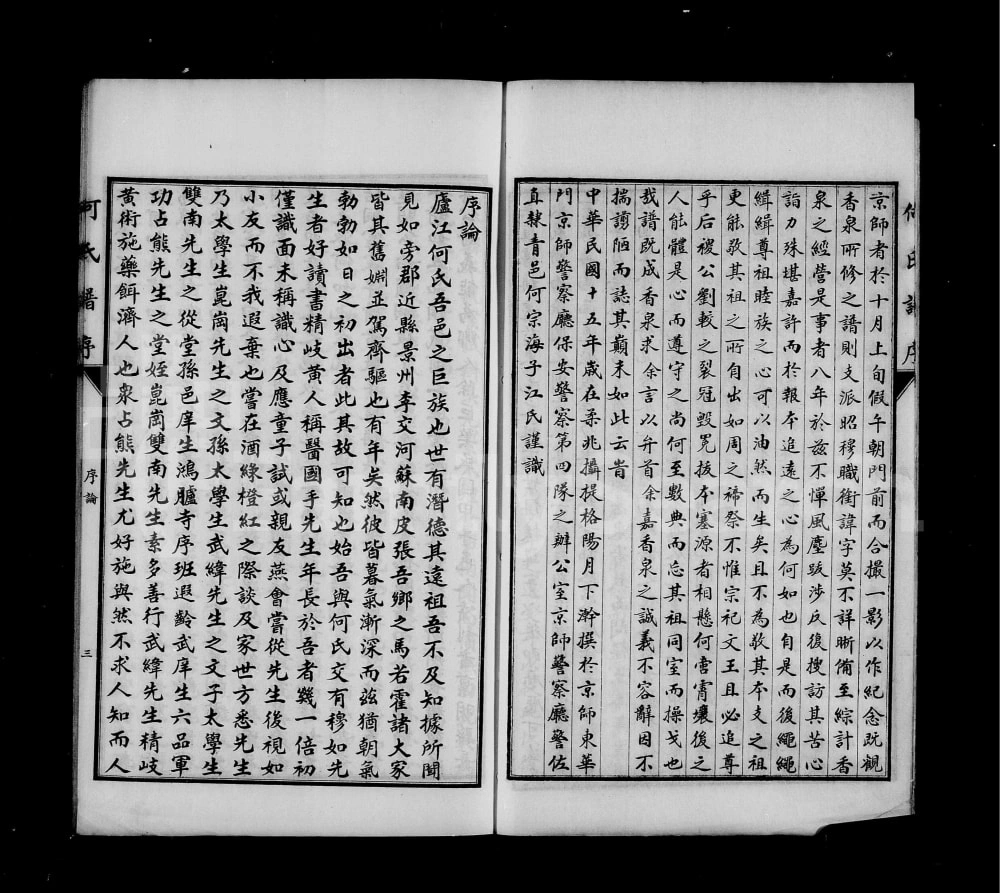 京師者於十月上旬假午朝門前而合撮一影以作紀念既觀
香泉所修之譜則支派昭穆職銜諱字莫不詳晰備至綜計香
泉之經營是事者八年於茲不憚風塵跋涉反復搜訪其苦心
詣力殊堪嘉許而於報本追遠之心為何如也自是而後繩繩
緝緝尊祖睦族之心可以油然而生矣且不為敬其本支之祖
更能敬其祖之所自出如周之禘祭不惟宗祀文王且必追尊
乎后稷公劉較之裂冠毀冕拔本塞源者相懸何啻霄壤後之
人能體是心而遵守之尚何至數典而忘其祖同室而操戈也
哉譜既成香泉求余言以弁首余嘉香泉之誠義不容辭因不
揣謭陋而誌其顛末如此云爾
中華民國十五年歲在柔兆攝提格陽月下澣撰於京師東華
門京師警察廳保安警察第四隊之辦公室京師警察廳警佐
直隸青邑何宗海子江氏謹識
何氏譜序
序論
三
序論
廬江何氏吾邑之巨族也世有潛德其遠祖吾不及知據所聞
見如旁郡近縣景州李交河蘇南皮張吾鄉之馬若霍諸大家
皆其舊姻並駕齊驅也有年矣然彼皆暮氣漸深而茲猶朝氣
勃勃如日之初出者此其故可知也始吾與何氏交有穆如先
生者好讀書精岐黃人稱醫國手先生年長於吾者幾一倍初
僅識面未稱識心及應童子試或親友燕會嘗從先生後視如
小友而不我遐棄也嘗在酒綠橙紅之際談及家世方悉先生
乃太學生崑崗先生之文孫太學生武緯先生之文子太學生
雙南先生之從堂孫邑庠生鴻臚寺序班遐齡武庠生六品軍
功占熊先生之堂姪崑崗雙南先生素多善行武緯先生精岐
黃術施藥餌濟人也衆占熊先生尤好施與然不求人知而人